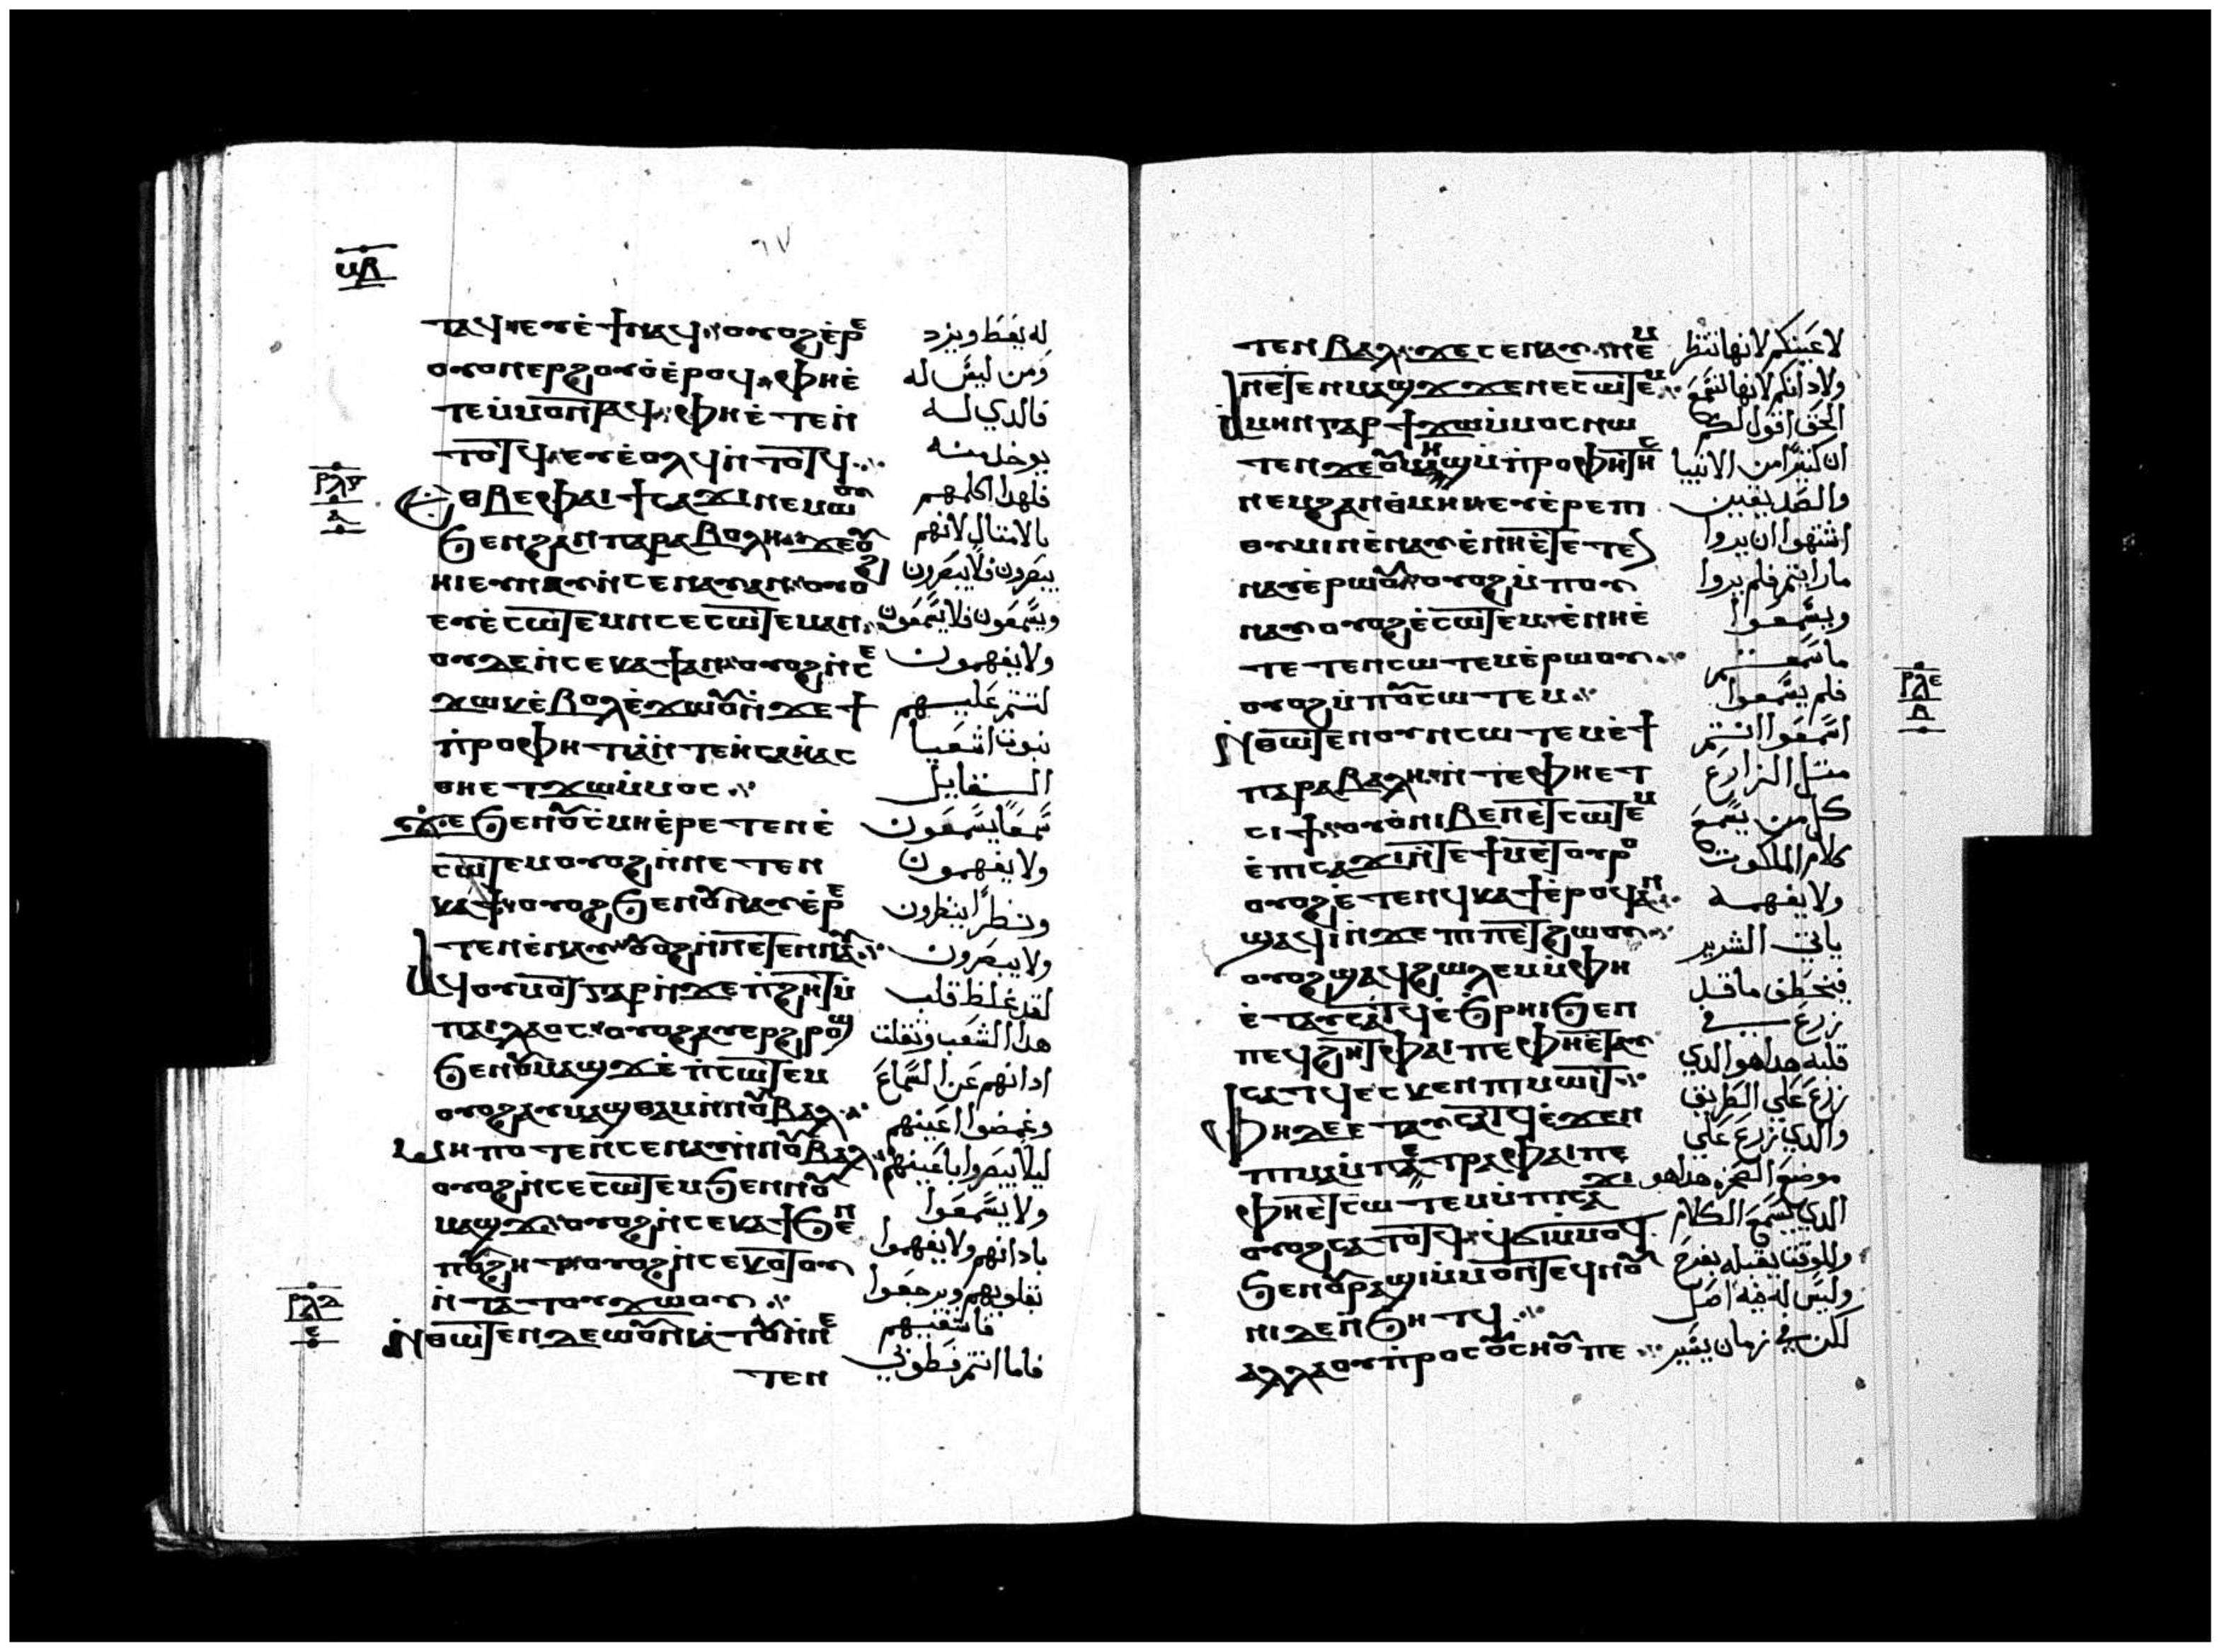 ⲙⲃ
ⲧⲁϥ ⲉⲩⲉ̇ϯⲛⲁϥ ⲟⲩⲟϩ ⲉ̇ⲣⲉ
ⲟⲩⲟⲛ ⲉⲣϩⲟⲩⲟ̇ ⲉ̇ⲣⲟϥ ⲫⲏⲉ̇
ⲧⲉ ⲙ̇ⲙⲟⲛⲧⲁϥ ⲫⲏ ⲉ̇ⲧⲉⲛ
ⲧⲟⲧϥ ⲉⲩⲉ̇ⲟⲗϥ ⲛ̇ⲧⲟⲧϥ
ⲣⲗⲅ
ⲁ
ⲉⲑⲃⲉⲫⲁⲓ ϯⲥⲁϫⲓ ⲛⲉⲙⲱⲟⲩ
ϧⲉⲛϩⲁⲛⲡⲁⲣⲁⲃⲟⲗⲏ ϫⲉⲟⲩ
ⲏⲓ ⲉⲩⲛⲁⲩ ⲛ̇ⲥⲉⲛⲁⲩ ⲁⲛ ⲟⲩⲟϩ
ⲉⲩⲉ̇ⲥⲱⲧⲉⲙ ⲛⲥⲉⲥⲱⲧⲉⲙ ⲁⲛ
ⲟⲩⲇⲉ ⲛ̇ⲥⲉⲕⲁϯ ⲁⲛ ⲟⲩⲟϩ ⲛ̇ⲥⲉ
ϫⲱⲕ ⲉ̇ⲃⲟⲗ ⲉ̇ϫⲱⲟⲩ ⲛ̇ϫⲉϯ
ⲡ̇ⲣⲟⲫⲏⲧⲓⲁ̇ ⲛ̇ⲧⲉ ⲏ̇ⲥⲁⲏ̇ⲁⲥ
ⲑⲏⲉⲧϫⲱ ⲙ̇ⲙⲟⲥ
ϫⲉ ϧⲉⲛⲟⲩⲥ̇ⲙⲏ ⲉ̇ⲣⲉⲧⲉⲛⲉ̇
ⲥⲱⲧⲉⲙ ⲟⲩⲟϩ ⲛ̇ⲛⲉⲧⲉⲛ
ⲕⲁϯ ⲟⲩⲟϩ ϧⲉⲛⲟⲩⲛⲁⲩ ⲉ̇ⲣⲉ
ⲧⲉⲛⲉ̇ⲛⲁⲩ ⲟⲩⲟϩ ⲛ̇ⲛⲉⲧⲉⲛⲛⲁⲩ
ⲁϥⲟⲩⲙⲟⲧ ⲅⲁⲣ ⲛ̇ϫⲉⲡ̇ϩⲏⲧ ⲙ̇
ⲡⲁⲓⲗⲁⲟⲥ ⲟⲩⲟϩ ⲁⲩⲉⲣϩⲣⲟϣ
ϧⲉⲛⲟⲩⲙⲁϣϫ ⲉ̇ⲡ̇ⲥⲱⲧⲉⲙ
ⲟⲩⲟϩ ⲁⲩⲙⲁϣⲑⲁⲙ ⲛ̇ⲛⲟⲩⲃⲁⲗ
ⲙⲏⲡⲟⲧⲉ ⲛ̇ⲥⲉⲛⲁⲩ ⲛ̇ⲛⲟⲩⲃⲁⲗ
ⲟⲩⲟϩ ⲛ̇ⲥⲉⲥⲱⲧⲉⲙ ϧⲉⲛⲛⲟⲩ
ⲙⲁϣϫ ⲟⲩⲟϩ ⲛ̇ⲥⲉⲕⲁϯ ϧⲉⲛ
ⲡⲟⲩϩⲏⲧ ⲟⲩⲟϩ ⲛ̇ⲥⲉⲕⲟⲧⲟⲩ
ⲛ̇ⲧⲁⲧⲟⲩϫⲱⲟⲩ
ⲣⲗⲇ
ⲉ
ⲛ̇ⲑⲱⲧⲉⲛ ⲇⲉ ⲱⲟⲩⲛⲓⲁ̇ⲧⲟⲩ ⲛ̇ⲛⲉ
ⲧⲉⲛ
له يفتط ويزد
ومن ليس له
فالدي لـه
يوخد منه
فلهدا اكلمهم
بالامتال لانهم
يبصرون فلا يبصرون
ويسمعون فلا يسمعون
ولا يفهمون
لتتم عليهم
نبوت اشعيا
القايل
سمعا يسمعون
ولا يفهمون
ونظرا ينظرون
ولا يبصرون
لقد غلظ قلب
هدا الشعب وثقلت
ادانهم عن السماع
وغمضوا اعينهم
ليلا يبصروا باعينهم
ولا يسمعوا
بادانهم ولا يفهموا
بقلوبهم ويرجعوا
فاشفيهم
فاما انتم فطوبي
ⲧⲉⲛⲃⲁⲗ ϫⲉ ⲥⲉⲛⲁⲩ ⲛⲉⲙ
ⲛⲉⲧⲉⲛⲙⲁϣϫ ϫⲉ ⲛⲉⲥⲱⲧⲉⲙ
ⲁⲙⲏⲛ ⲅⲁⲣ ϯϫⲱ ⲙ̇ⲙⲟⲥ ⲛⲱ
ⲧⲉⲛ ϫⲉ ⲟⲩⲙⲏϣ ⲙ̇ⲡ̇ⲣⲟⲫⲏⲧⲏⲥ
ⲛⲉⲙ ϩⲁⲛⲑ̇ⲙⲏⲓ ⲉⲩⲉ̇ⲣⲉⲡⲓ
ⲑⲩⲙⲓⲛ ⲉ̇ⲛⲁⲩ ⲉ̇ⲛⲏⲉ̇ⲧⲉⲧⲉ
ⲛⲁⲩ ⲉ̇ⲣⲱⲟⲩ ⲟⲩⲟϩ ⲙ̇ⲡⲟⲩ
ⲛⲁⲩ ⲟⲩⲟϩ ⲉ̇ⲥⲱⲧⲉⲙ ⲉ̇ⲛⲏⲉ̇
ⲧⲉⲧⲉⲛⲥⲱⲧⲉⲙ ⲉ̇ⲣⲱⲟⲩ
ⲟⲩⲟϩ ⲙ̇ⲡⲟⲩⲥⲱⲧⲉⲙ
ⲛ̇ⲑⲱⲧⲉⲛ ⲟⲩⲛ ⲥⲱⲧⲉⲙ ⲉ̇ϯ
ⲡⲁⲣⲁⲃⲟⲗⲏ ⲛ̇ⲧⲉ ⲫⲏⲉⲧ
ⲣⲗⲉ
ⲃ
ⲥⲓϯ ⲟⲩⲟⲛ ⲛⲓⲃⲉⲛ ⲉⲧⲥⲱⲧⲉⲙ
ⲉ̇ⲡⲓⲥⲁϫⲓ ⲛ̇ⲧⲉ ϯⲙⲉⲧⲟⲩⲣⲟ
ⲟⲩⲟϩ ⲉ̇ⲧⲉⲛϥⲕⲁϯ ⲉ̇ⲣⲟϥ ⲁⲛ
ϣⲁϥⲓ̇ ⲛ̇ϫⲉ ⲡⲓⲡⲉⲧϩⲱⲟⲩ
ⲟⲩⲟϩ ϣⲁϥϩⲱⲗⲉⲙ ⲙ̇ⲫⲏ
ⲉ̇ⲧⲁⲩⲥⲁⲧϥ ⲉ̇ϧⲣⲏⲓ ϧⲉⲛ
ⲡⲉϥϩⲏⲧ ⲫⲁⲓ ⲡⲉ ⲫⲏⲉ̇ⲧⲁⲩ
ⲥⲁⲧϥ ⲉⲥⲕⲉⲛ ⲡⲓⲙⲱⲓⲧ
ⲫⲏ ⲇⲉ ⲉⲧⲁⲩⲥⲁⲧϥ ⲉ̇ϫⲉⲛ
ⲡⲓⲙⲁ ⲙ̇ⲡⲉⲧⲣⲁ ⲫⲁⲓ ⲡⲉ
ⲫⲏⲉⲧⲥⲱⲧⲉⲙ ⲙ̇ⲡⲓⲥⲁϫⲓ
ⲟⲩⲟϩ ⲥⲁⲧⲟⲧϥ ϥϭⲓ ⲙ̇ⲙⲟϥ
ϧⲉⲛⲟⲩⲣⲁϣⲓ ⲙ̇ⲙⲟⲛⲧⲉϥⲛⲟⲩ
ⲛⲓ ⲇⲉ ⲛ̇ϧⲏⲧϥ
ⲁⲗⲗⲁ ⲟⲩⲡ̇ⲣⲟⲥⲟⲩⲥⲛⲟⲩ ⲡⲉ
لاعينكم لانها تنظر
ولادانكم لانها تسمع
الحق اقول لكم
ان كثيرا من الانبيا
والصديقين
اشتهوا ان يروا
ما رايتم فلم يروا
ويسمعوا
ما سمعتم
فلم يسمعوا
اسمعوا انتم
متل الزارع
كل من يسمع
كلام الملكوت
ولا يفهمه
ياتي الشرير
فيخطف ما قد
زرع في
قلبه هدا هو الدي
زرع علي الطريق
والدي زرع علي
موضع الصخره هدا هو
الدي يسمع الكلام
وللوقت يقبله بفرح
وليس له فيه اصل
لكن في زمان يسير